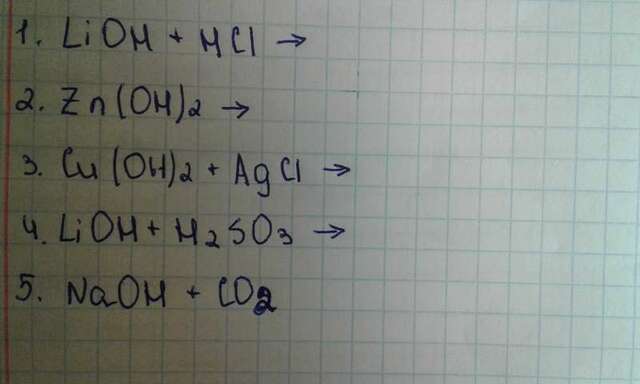 1. LiOH + HCl →
2. Zn(OH)₂ →
3. Cu(OH)₂ + AgCl →
4. LiOH + H₂SO₃ →
5. NaOH + CO₂